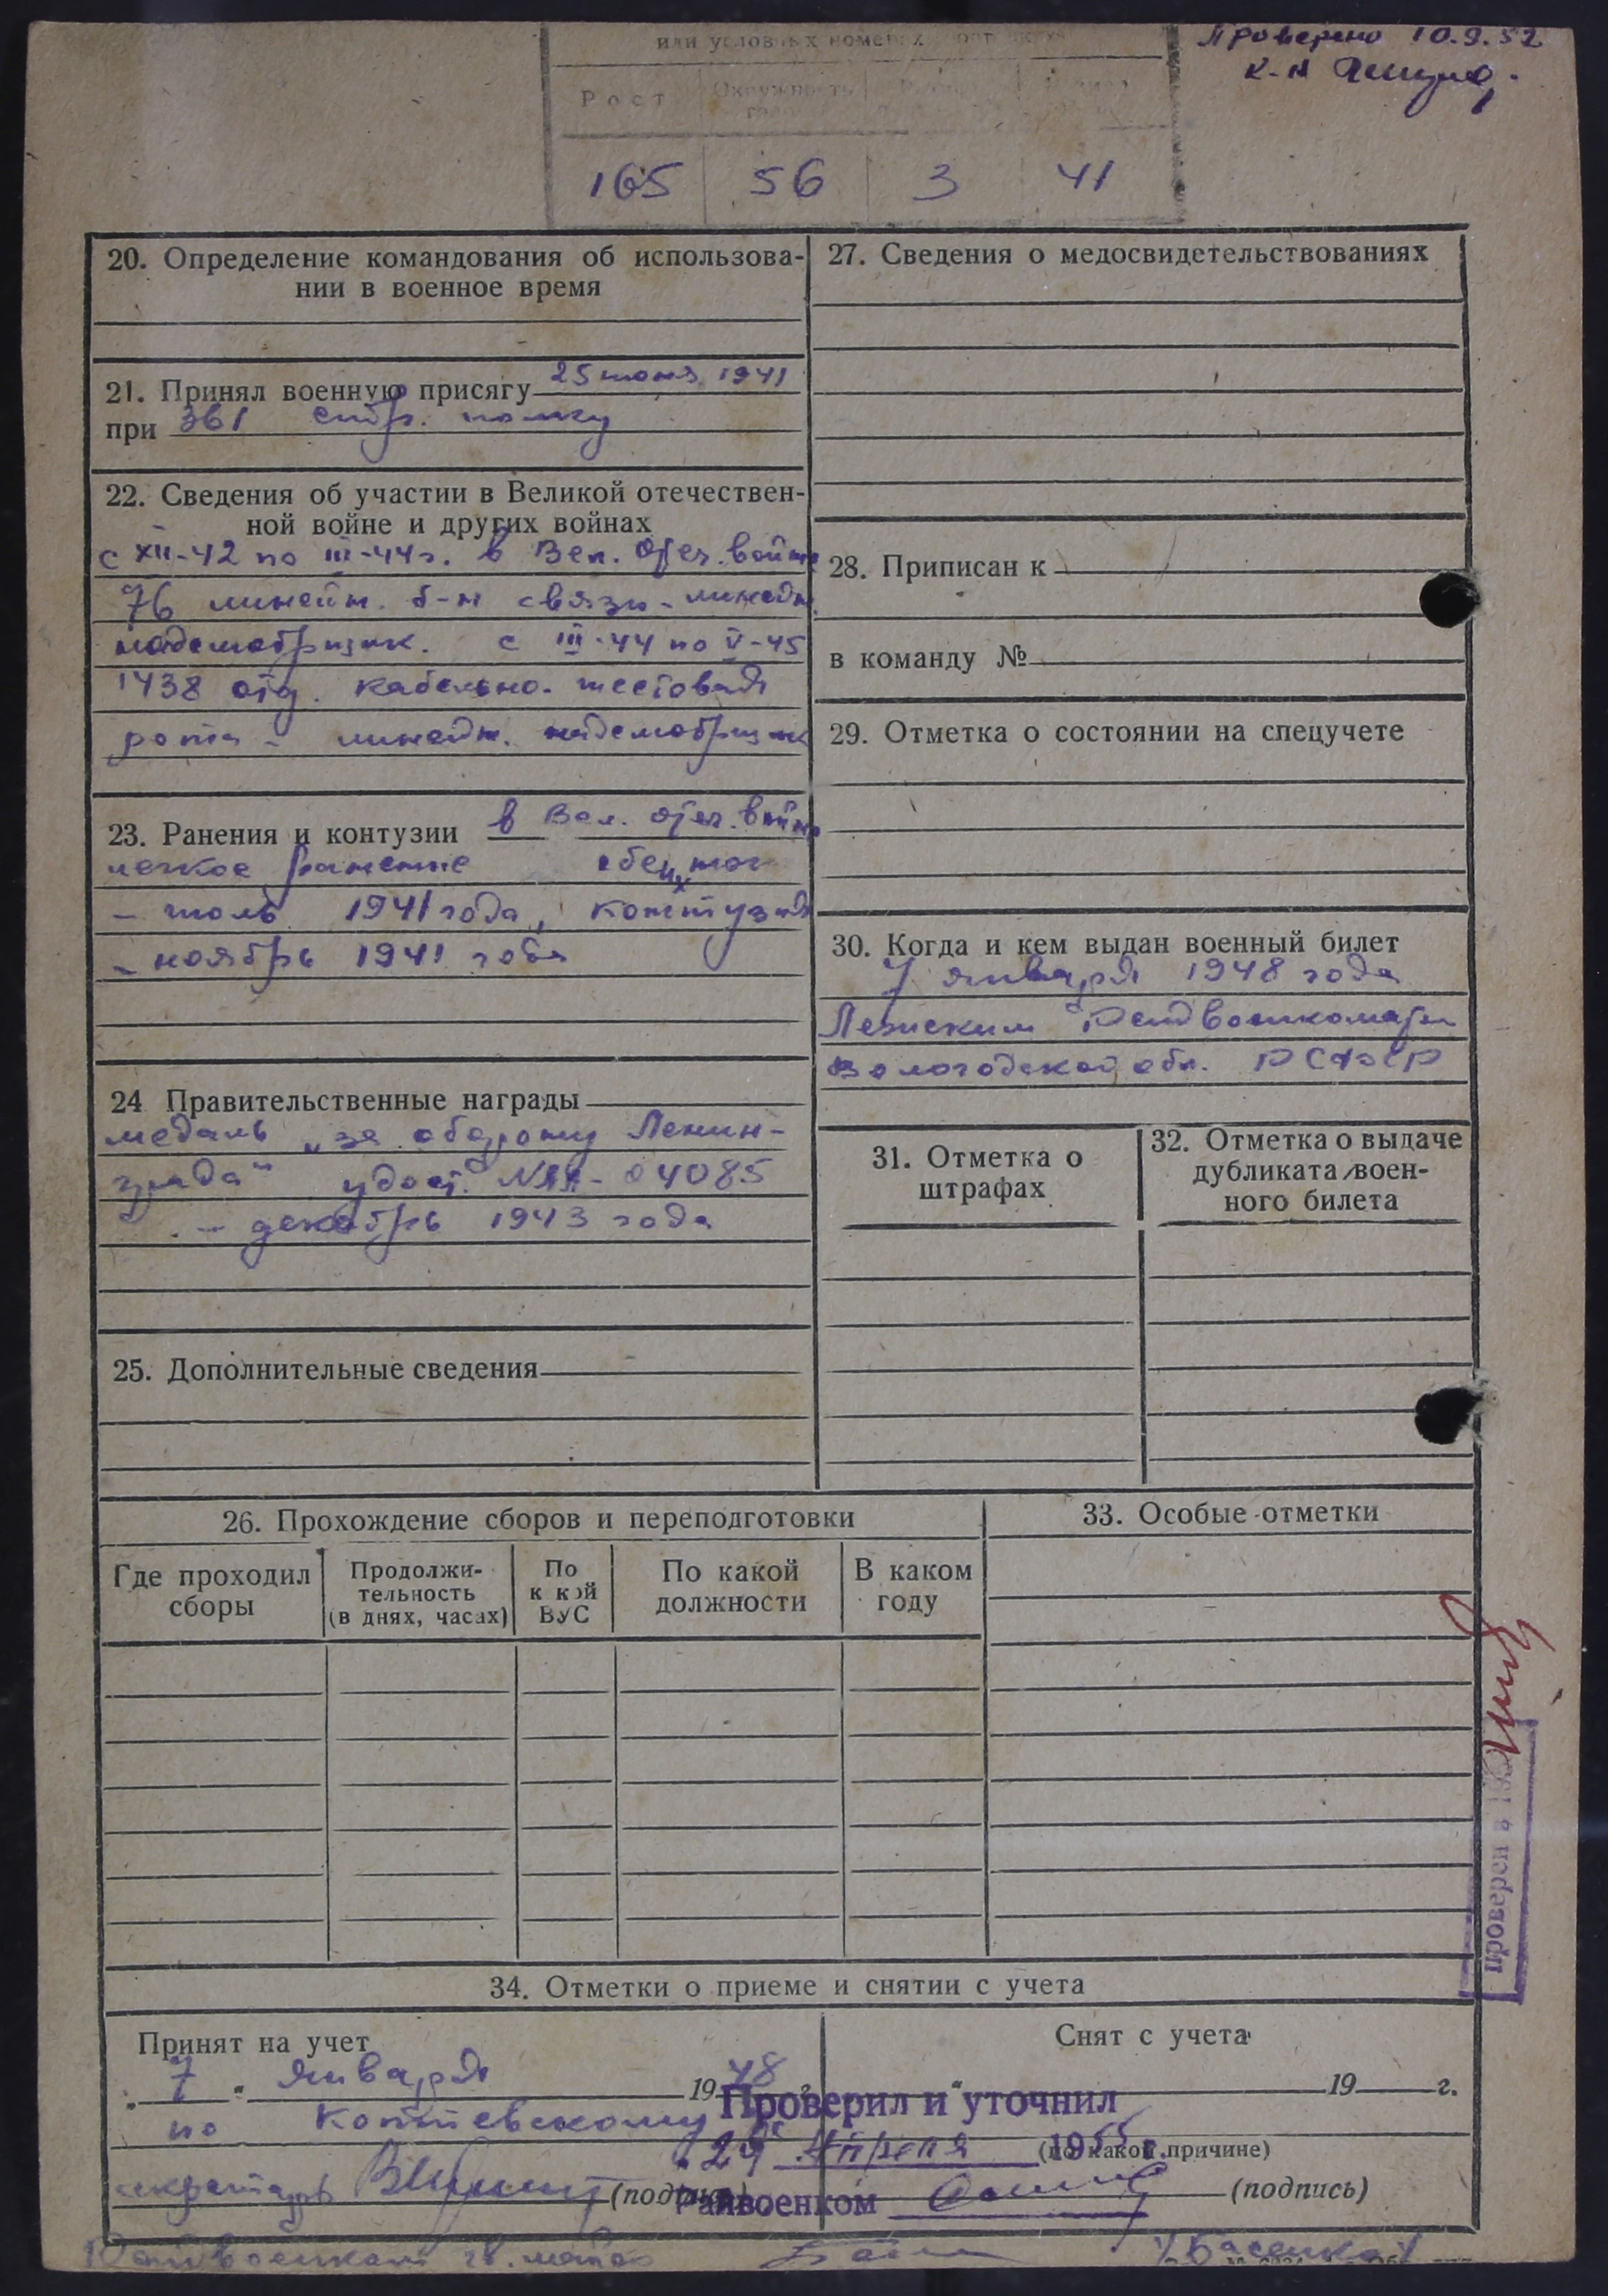 Проверено 10.9.52
к-н
или условных номерах
Рост Окружность
165 56 3 41
20. Определение командования об использова-
нии в военное время
21. Принял военную присягу 25 июня 1941
при 361 стр. полку
22. Сведения об участии в Великой отечествен-
ной войне и других войнах
с XII-42 по III-44 г. в Вел. Отеч. войне
76 линейн. б-н связи - линейн.
надсмотрщик. с III-44 по V-45
1438 отд. кабельно-шестовая
рота - линейн. надсмотрщик
23. Ранения и контузии в Вел. отеч. войне
легкое ранение обеих ног
- июль 1941 года, контузия
- ноябрь 1941 года
24 Правительственные награды
медаль „за оборону Ленин-
града" удост. 04085
- декабрь 1943 года
25. Дополнительные сведения
27. Сведения о медосвидетельствованиях
28. Приписан к
в команду №
29. Отметка о состоянии на спецучете
30. Когда и кем выдан военный билет
7 января 1948 года
Лежским Райвоенкоматом
Вологодской обл. РСФСР
31. Отметка о
штрафах
32. Отметка о выдаче
дубликата воен-
ного билета
26. Прохождение сборов и переподготовки
Где проходил
сборы
Продолжи-
тельность
(в днях, часах)
По
к кой
ВУС
По какой
должности
В каком
году
33. Особые отметки
Проверен в
34. Отметки о приеме и снятии с учета
Принят на учет
„ 7 " января 1948 г.
по
секретарь (подпись)
Снят с учета
19 г.
(по какой причине)
(подпись)
Проверил и уточнил
„29" Апреля 1955 г.
Райвоенком
Райвоенком гв. майор /Басенко/